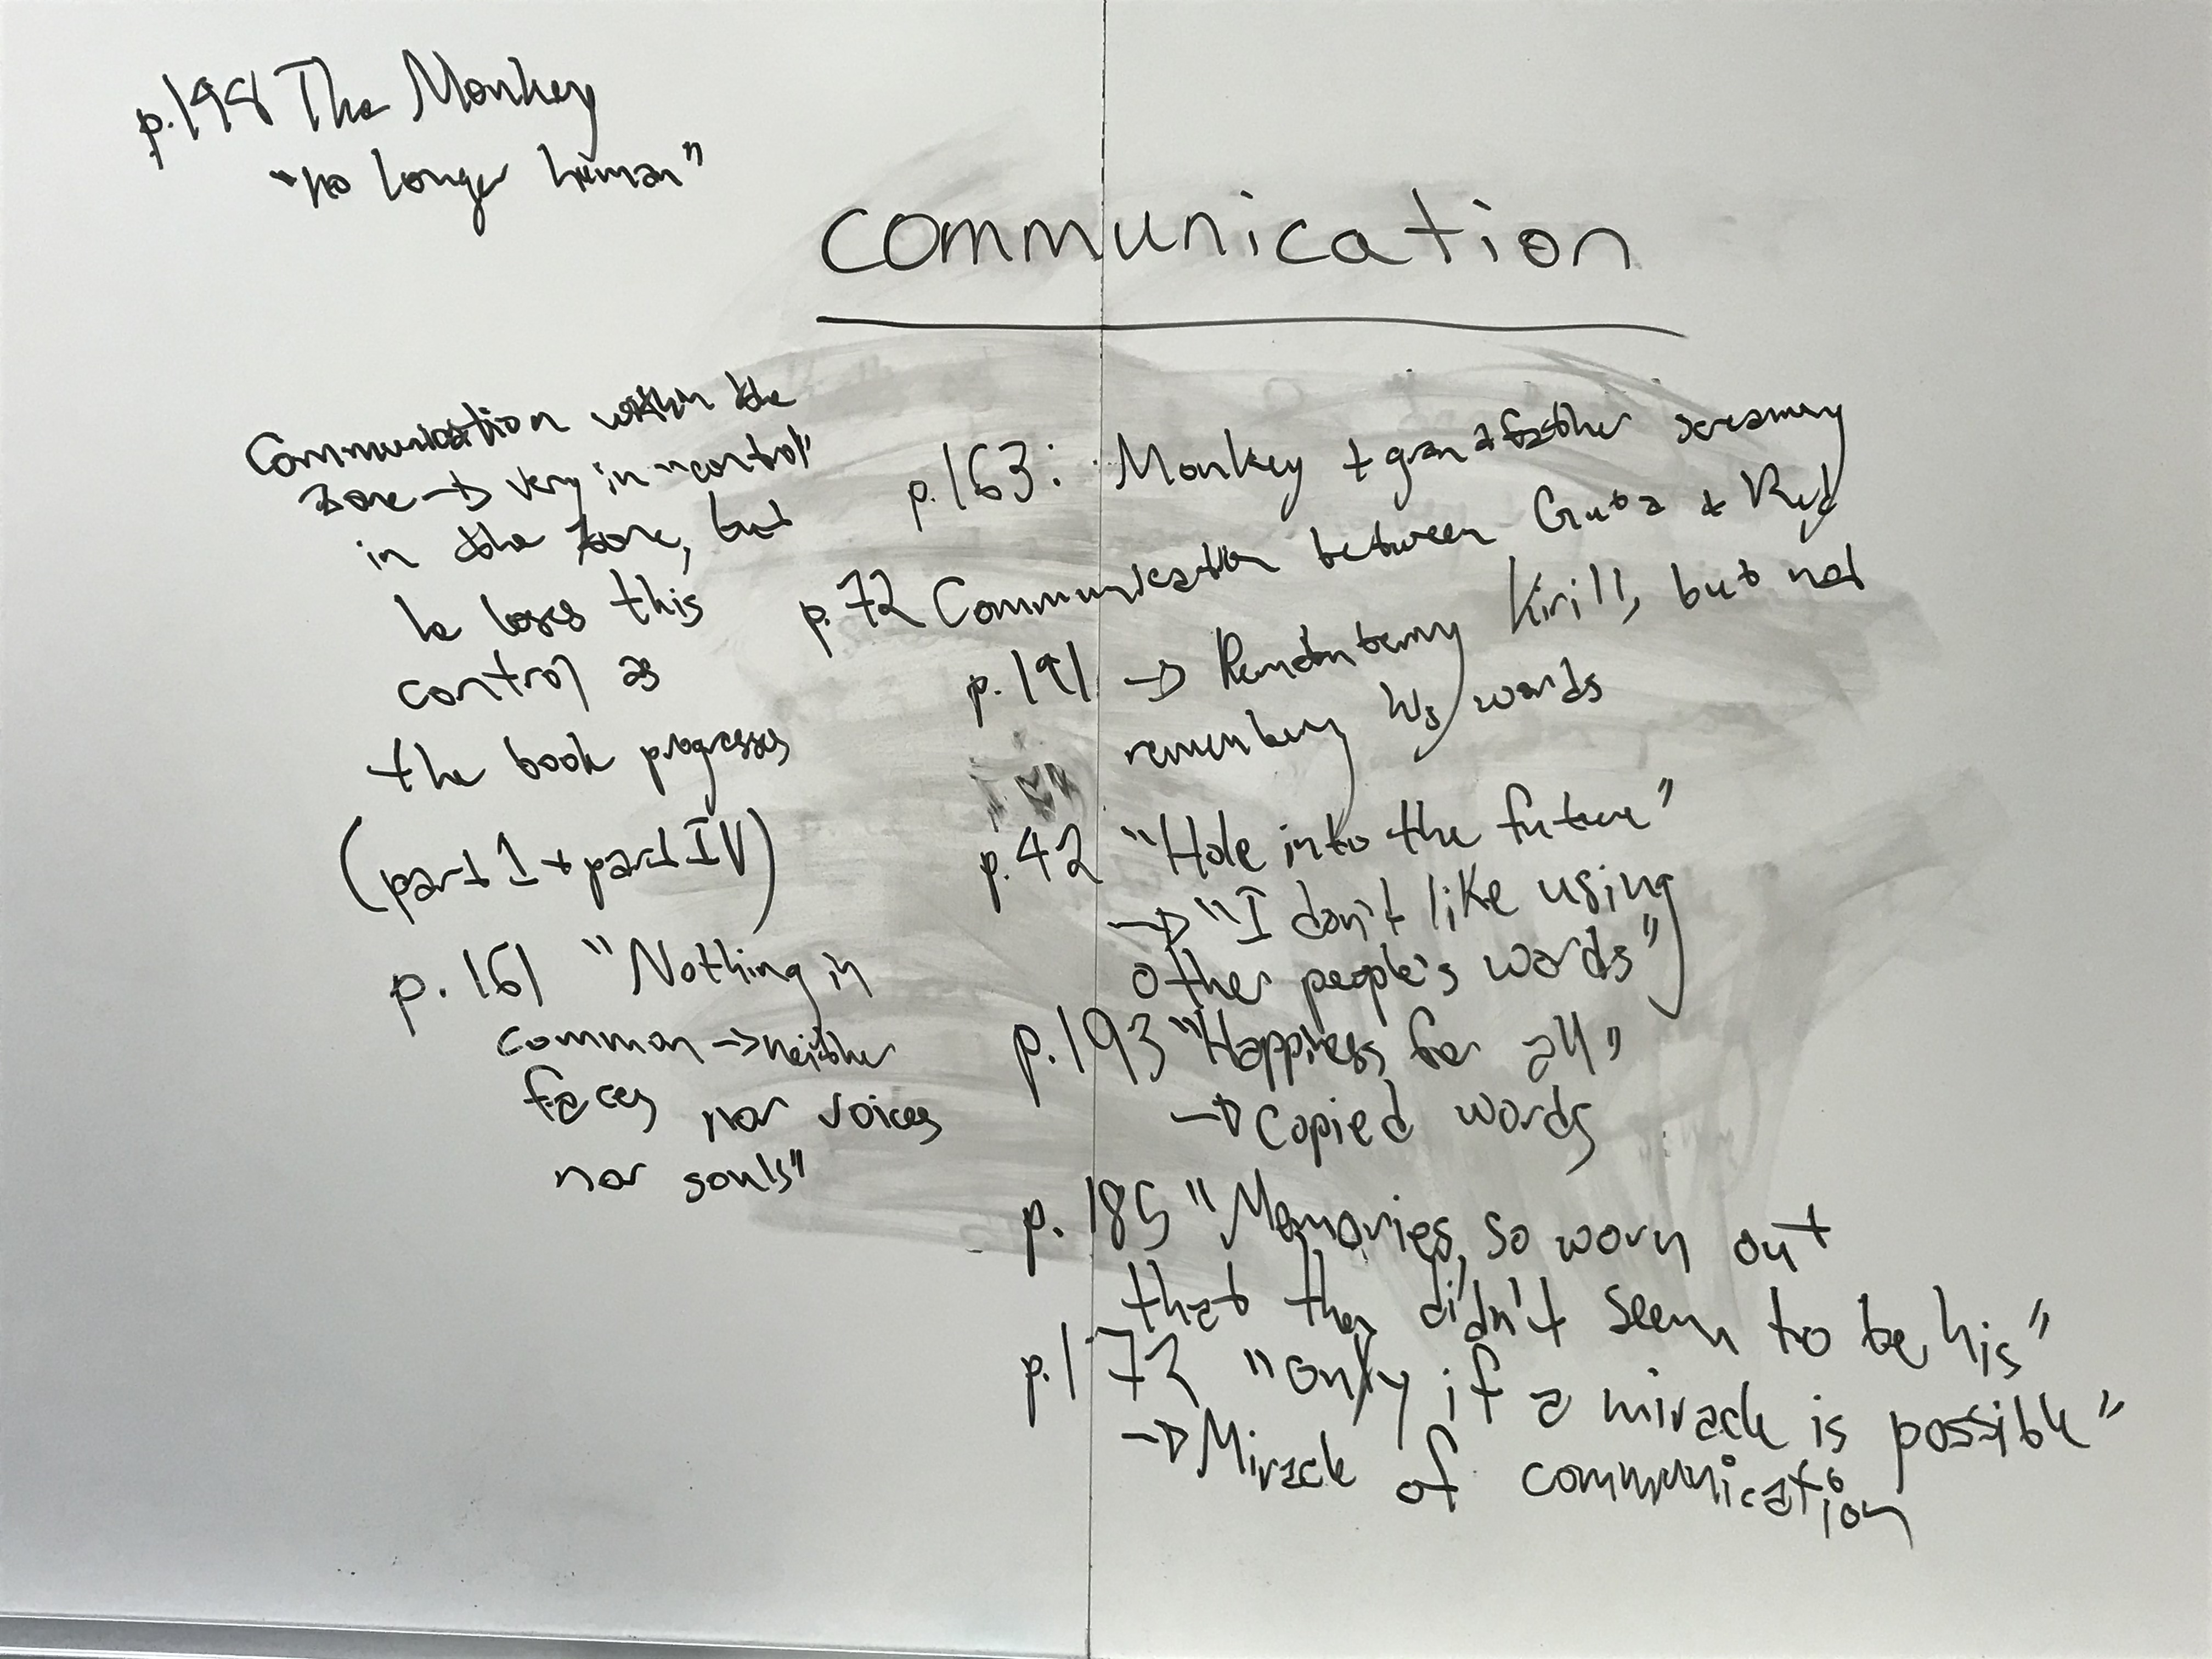 p.198 The Monkey
"no longer human"
communication
Communication within the
zone → very in "control"
in the zone, but
he loses this
control as
the book progresses
(part 1 + part IV)
p. 161 "Nothing in
common → neither
faces nor voices
nor souls"
p.163: Monkey + grandfather screaming
p.72 Communication between Guta + Red
p.191 → Kirill, but not
remembering his words
p.42 "Hole into the future"
→ "I don't like using
other people's words"
p.193 "Happiness for all"
→ copied words
p. 185 "Memories, so worn out
that they didn't seem to be his"
p.172 "only if a miracle is possible"
→ Miracle of communication